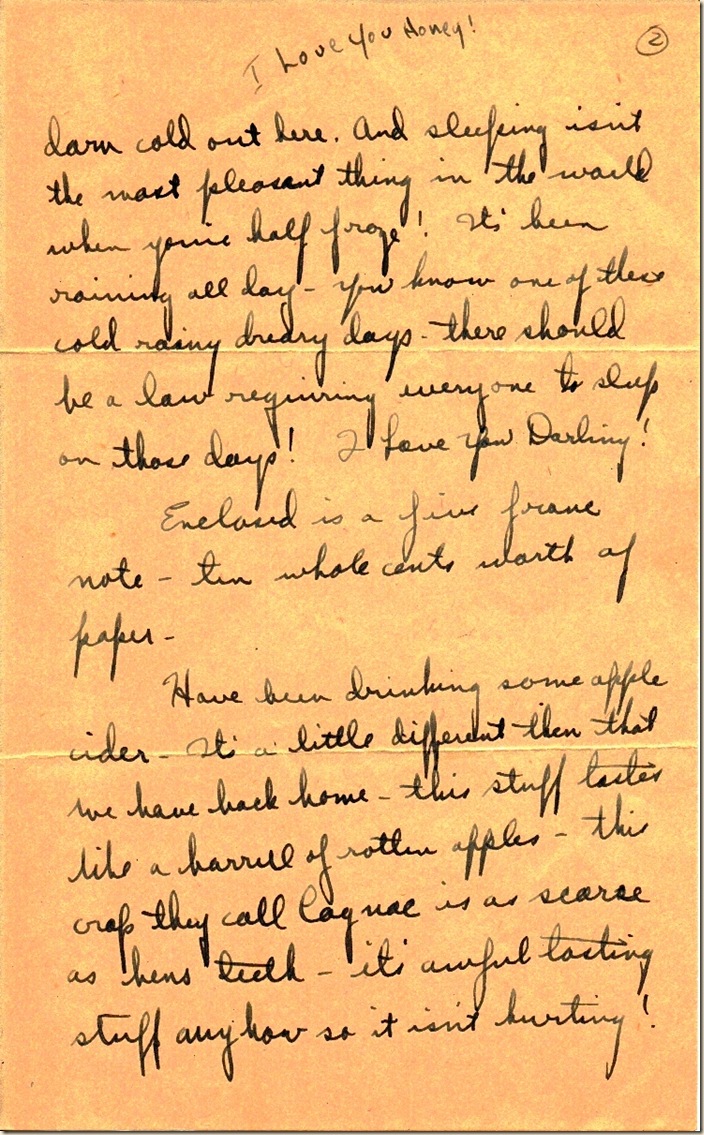 I Love You Honey!
2
darn cold out here. And sleeping isn't
the most pleasant thing in the world
when you're half froze! It's been
raining all day - you know one of these
cold rainy dreary days - there should
be a law requiring everyone to sleep
on those days! I Love You Darling!
Enclosed is a five franc
note - ten whole cents worth of
paper -
Have been drinking some apple
cider - It's a little different then that
we have back home - this stuff tastes
like a barrell of rotten apples - this
crap they call Cognac is as scarse
as hens teeth - it's awful tasting
stuff anyhow so it isn't hurting!